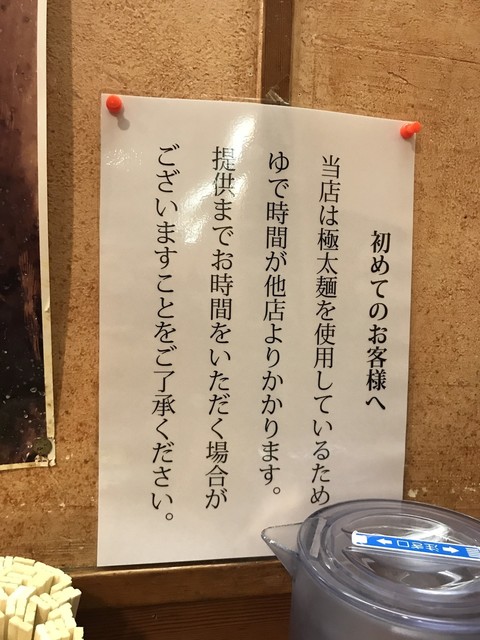 初めてのお客様へ
当店は極太麺を使用しているため
ゆで時間が他店よりかかります。
提供までお時間をいただく場合が
ございますことをご了承ください。
注ぎ口